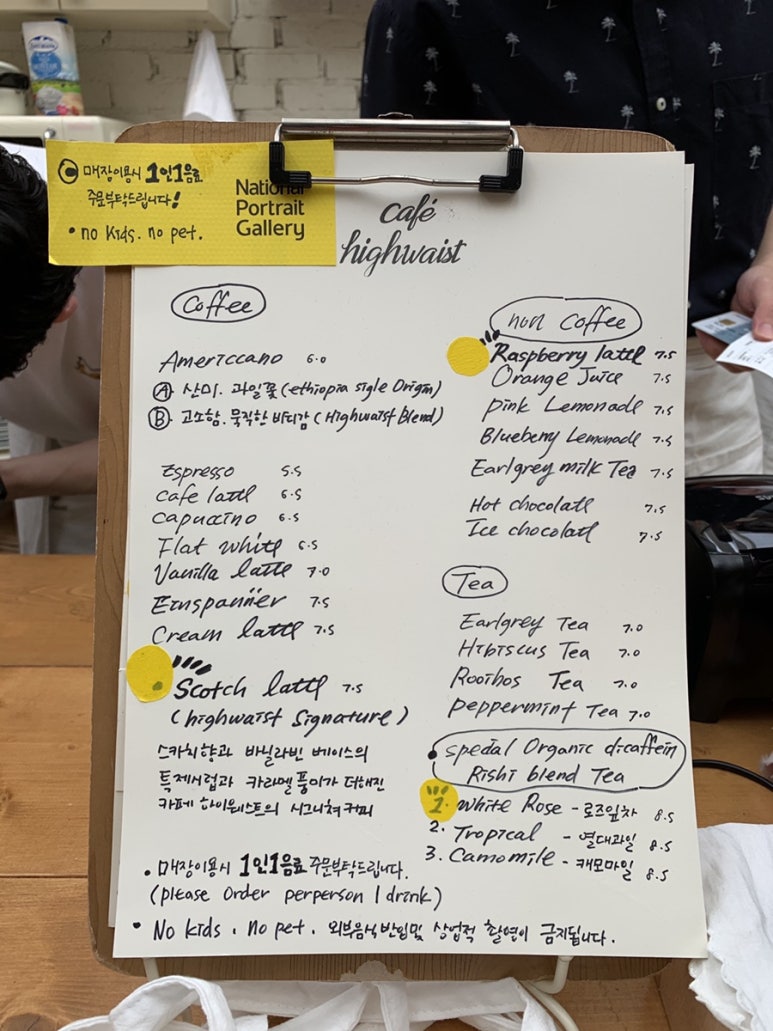 ⓒ 매장이용시 1인1음료
주문부탁드립니다!
• no kids. no pet.
National
Portrait
Gallery
café
highwaist
Coffee
Americcano 6.0
Ⓐ 산미. 과일꽃 (ethiopia sigle Origin)
Ⓑ 고소함. 묵직한 바디감 (Highwaist Blend)
Espresso 5.5
cafe latte 6.5
capuccino 6.5
Flat white 6.5
Vanilla latte 7.0
Einspanner 7.5
Cream latte 7.5
Scotch latte 7.5
(highwaist signature)
스카치향과 바닐라빈 베이스의
특제시럽과 카라멜 풍미가 더해진
카페 하이웨스트의 시그니쳐 커피
non coffee
Raspberry latte 7.5
Orange Juice 7.5
Pink Lemonade 7.5
Blueberry Lemonade 7.5
Earlgrey milk Tea 7.5
Hot chocolate 7.5
Ice chocolate 7.5
Tea
Earlgrey Tea 7.0
Hibiscus Tea 7.0
Rooibos Tea 7.0
peppermint Tea 7.0
• special Organic dicaffein
Rishi blend Tea
1. White Rose - 로즈잎차 8.5
2. Tropical - 열대과일 8.5
3. Camomile - 캐모마일 8.5
• 매장이용시 1인1음료 주문부탁드립니다.
(please order perperson 1 drink)
• No kids. No pet. 외부음식 반입및 상업적 촬영이 금지됩니다.